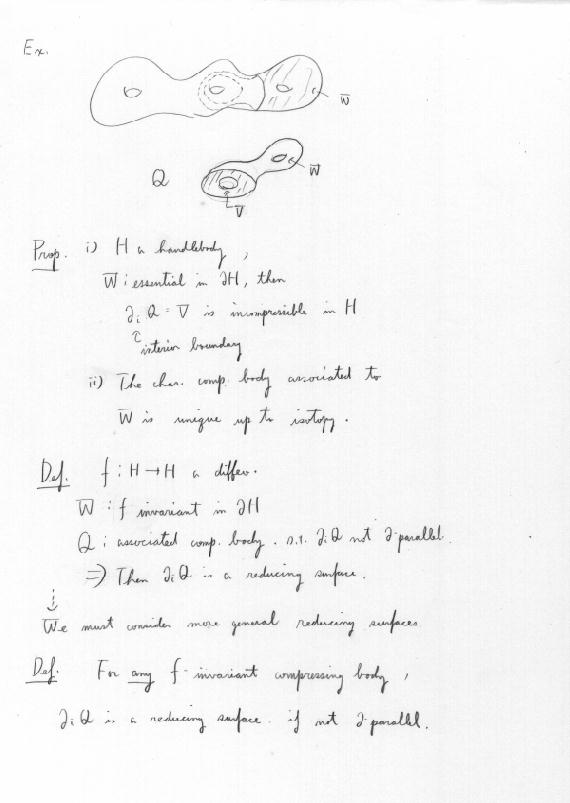 Ex.
W̅
Q
W̅
V̅
Prop. i) H a handlebody,
W̅ : essential in ∂H, then
∂ᵢQ = V̅ is incompressible in H
interior boundary
ii) The char. comp. body associated to
W̅ is unique up to isotopy.
Def. f : H → H a diffeo.
W̅ : f invariant in ∂H
Q : associated comp. body. s.t. ∂ᵢQ not ∂-parallel.
⇒) Then ∂ᵢQ is a reducing surface.
We must consider more general reducing surfaces
Def. For any f-invariant compressing body,
∂ᵢQ is a reducing surface. if not ∂-parallel.